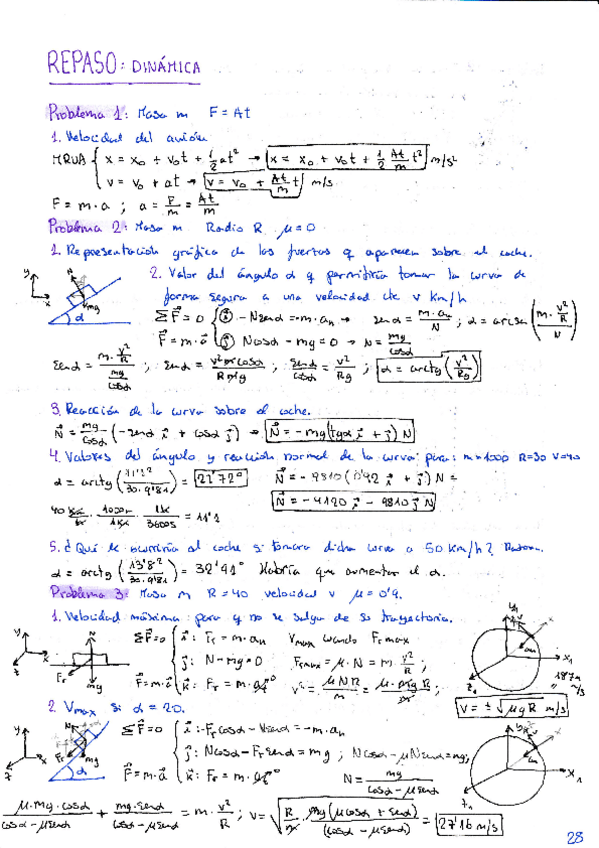 REPASO: DINÁMICA
Problema 1: Masa m F = At
1. Velocidad del avión
MRUA { x = x₀ + v₀t + 1/2 at² → x = x₀ + v₀t + 1/2 At/m t² m/s²
v = v₀ + at → v = v₀ + At/m t m/s
F = m·a ; a = F/m = At/m
Problema 2: Masa m Radio R μ = 0
1. Representación gráfica de las fuerzas q aparecen sobre el coche.
2. Valor del ángulo α q permitiría tomar la curva de
forma segura a una velocidad de v km/h
ΣF = 0 { i - N senα = m·aₙ → senα = m·aₙ/N ; α = arcsen (m·v²/R / N)
F = m·a { j N cosα - mg = 0 → N = mg/cosα
senα = m·v²/R / mg/cosα ; senα = v² m cosα / R mg ; senα/cosα = v²/Rg ; α = arctg (v²/Rg)
3. Reacción de la curva sobre el coche.
N = mg/cosα (-senα i + cosα j) → N = -mg (tgα i + j) N
4. Valores del ángulo y reacción normal de la curva para: m=1000 R=30 V=40
α = arctg (11'1²/30·9'81) = 21'72° N = -9810 (0'92 i + j) N =
N = -4120 i - 9810 j N
40 km/h · 1000m/1km · 1h/3600s = 11'1
5. ¿Qué le ocurriría al coche si tomara dicha curva a 50 km/h? Razona.
α = arctg (13'8²/30·9'81) = 32'91° Habría que aumentar el α.
Problema 3: Masa m R = 40 velocidad v μ = 0'9.
1. Velocidad máxima para q no se salga de su trayectoria.
ΣF=0 { i: Fr = m·aₙ Vmax cuando Fr max
j: N - mg = 0 Fr max = μ·N = m v²/R ;
F=m·a { k: Fr = m·at⁰ v² = μNR/m = μ·mgR/m ;
V = ± √μgR m/s
18'79 m/s
2. Vmax si α = 20.
ΣF = 0 { i: -Fr cosα - N senα = -m·aₙ
j: N cosα - Fr senα = mg ; N cosα - μN senα = mg ;
F=m·a { k: Fr = m·at⁰ N = mg / cosα - μ senα
μ·mg·cosα / cosα - μ senα + mg·senα / cosα - μ senα = m·v²/R ; V = √R/m · mg(μ cosα + senα)/(cosα - μ senα) = 27'16 m/s
28